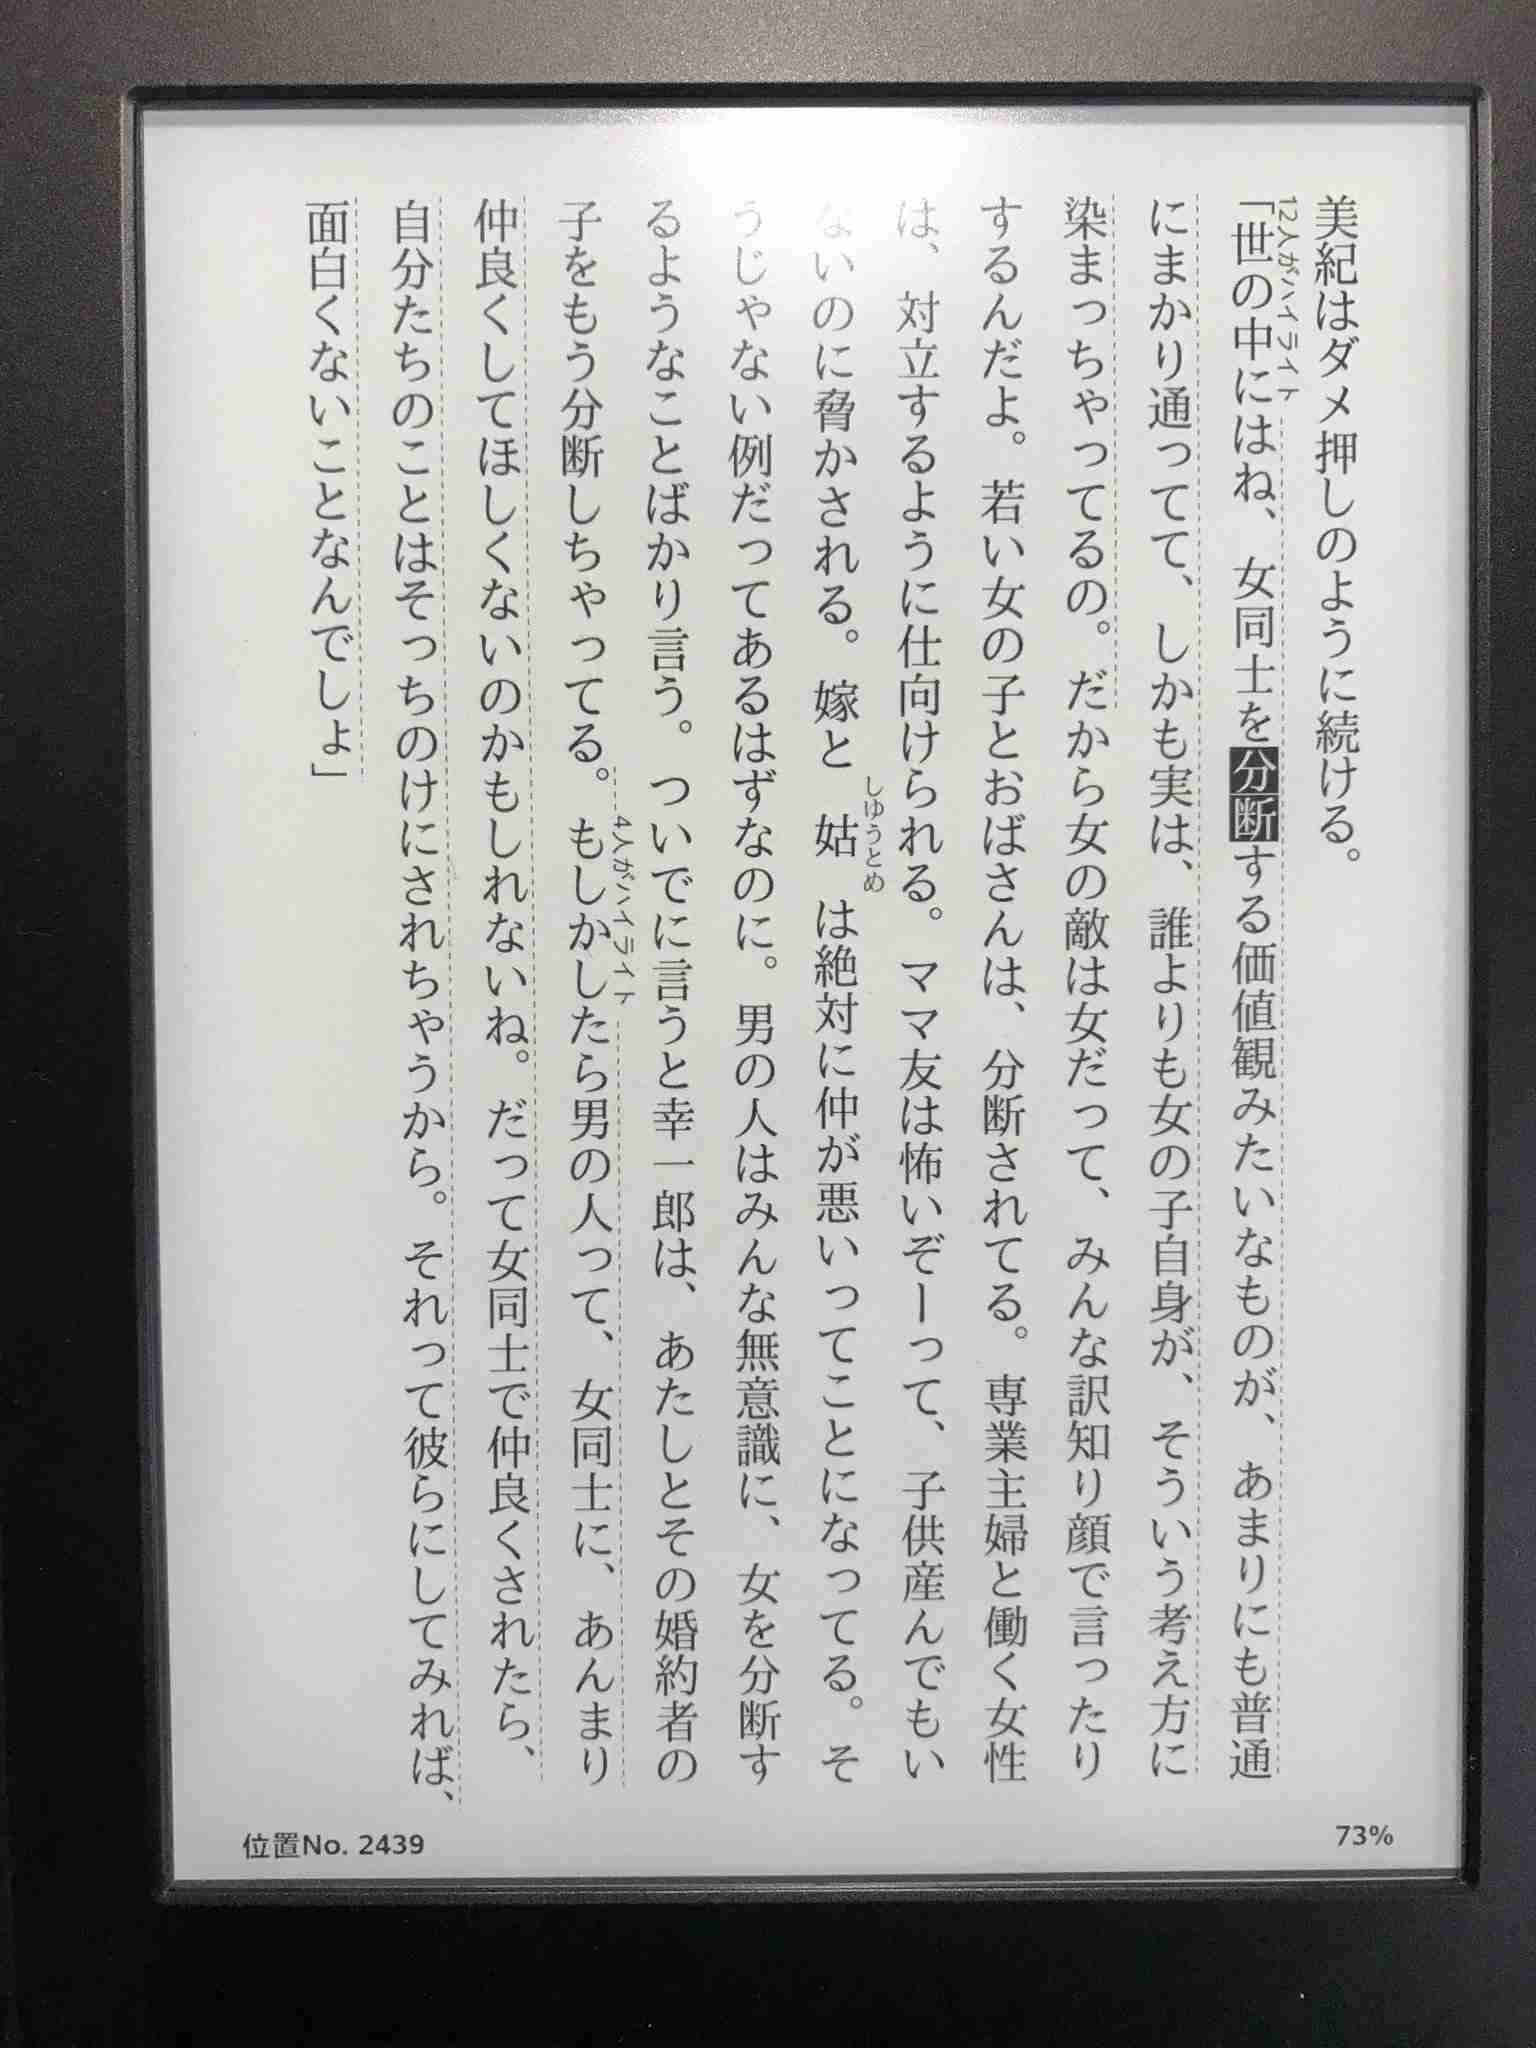 美紀はダメ押しのように続ける。
12人がハイライト
「世の中にはね、女同士を分断する価値観みたいなものが、あまりにも普通
にまかり通ってて、しかも実は、誰よりも女の子自身が、そういう考え方に
染まっちゃってるの。だから女の敵は女だって、みんな訳知り顔で言ったり
するんだよ。若い女の子とおばさんは、分断されてる。専業主婦と働く女性
は、対立するように仕向けられる。ママ友は怖いぞーって、子供産んでもい
ないのに脅かされる。嫁と姑は絶対に仲が悪いってことになってる。そ
しゆうとめ
うじゃない例だってあるはずなのに。男の人はみんな無意識に、女を分断す
るようなことばかり言う。ついでに言うと幸一郎は、あたしとその婚約者の
子をもう分断しちゃってる。もしかしたら男の人って、女同士に、あんまり
4人がハイライト
仲良くしてほしくないのかもしれないね。だって女同士で仲良くされたら、
自分たちのことはそっちのけにされちゃうから。それって彼らにしてみれば、
面白くないことなんでしょ」
位置No. 2439
73%